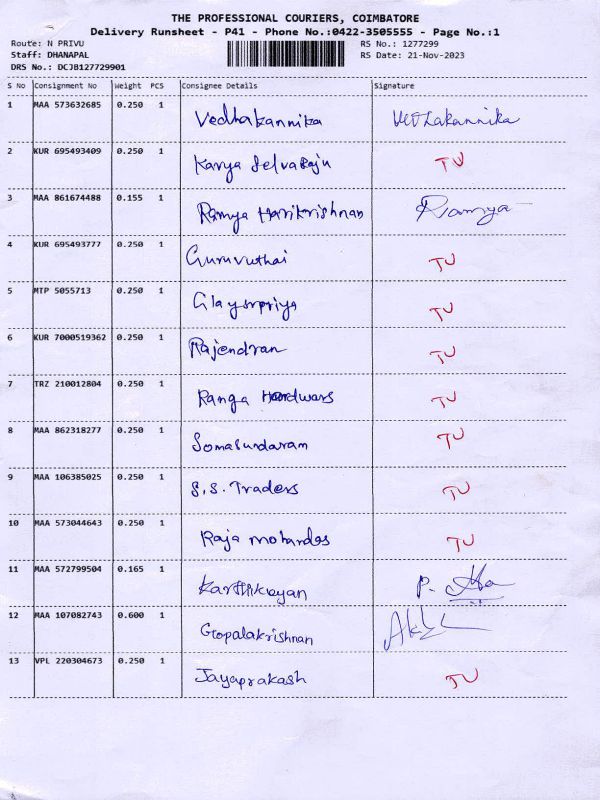 THE PROFESSIONAL COURIERS, COIMBATORE
Delivery Runsheet - P41 - Phone No.:0422-3505555 - Page No.:1
Route: N PRIVU RS No.: 1277299
Staff: DHANAPAL RS Date: 21-Nov-2023
DRS No.: DCJB127729901
S No Consignment No Weight PCS Consignee Details Signature
1 MAA 573632685 0.250 1 Vedhakannika Vedhakannika
2 KUR 695493409 0.250 1 Kavya Selvaraju TU
3 MAA 861674488 0.155 1 Ramya Harikrishnan Ramya
4 KUR 695493777 0.250 1 Guruvuthai TU
5 MTP 5055713 0.250 1 TU
6 KUR 7000519362 0.250 1 Rajendran TU
7 TRZ 210012804 0.250 1 Ranga Hardwars TU
8 MAA 862318277 0.250 1 Somasundaram TU
9 MAA 106385025 0.250 1 S.S. Traders TU
10 MAA 573044643 0.250 1 Raja mohandas TU
11 MAA 572799504 0.165 1 Karthikeyan P.
12 MAA 107082743 0.600 1 Gopalakrishnan
13 VPL 220304673 0.250 1 Jayaprakash TU